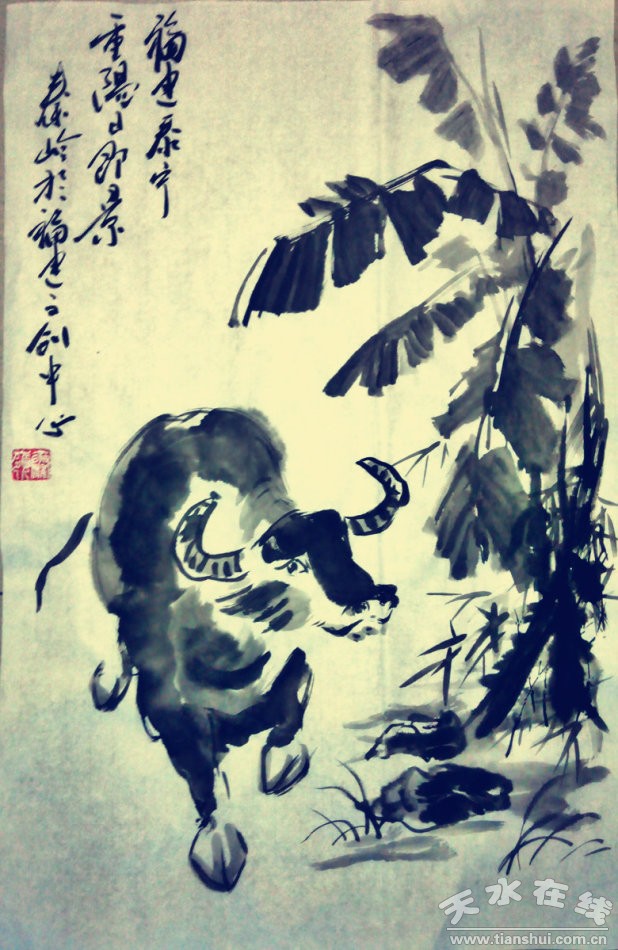 福建泰宁
重陽日即景
岭於福建创中心
天水在线
www.tianshui.com.cn